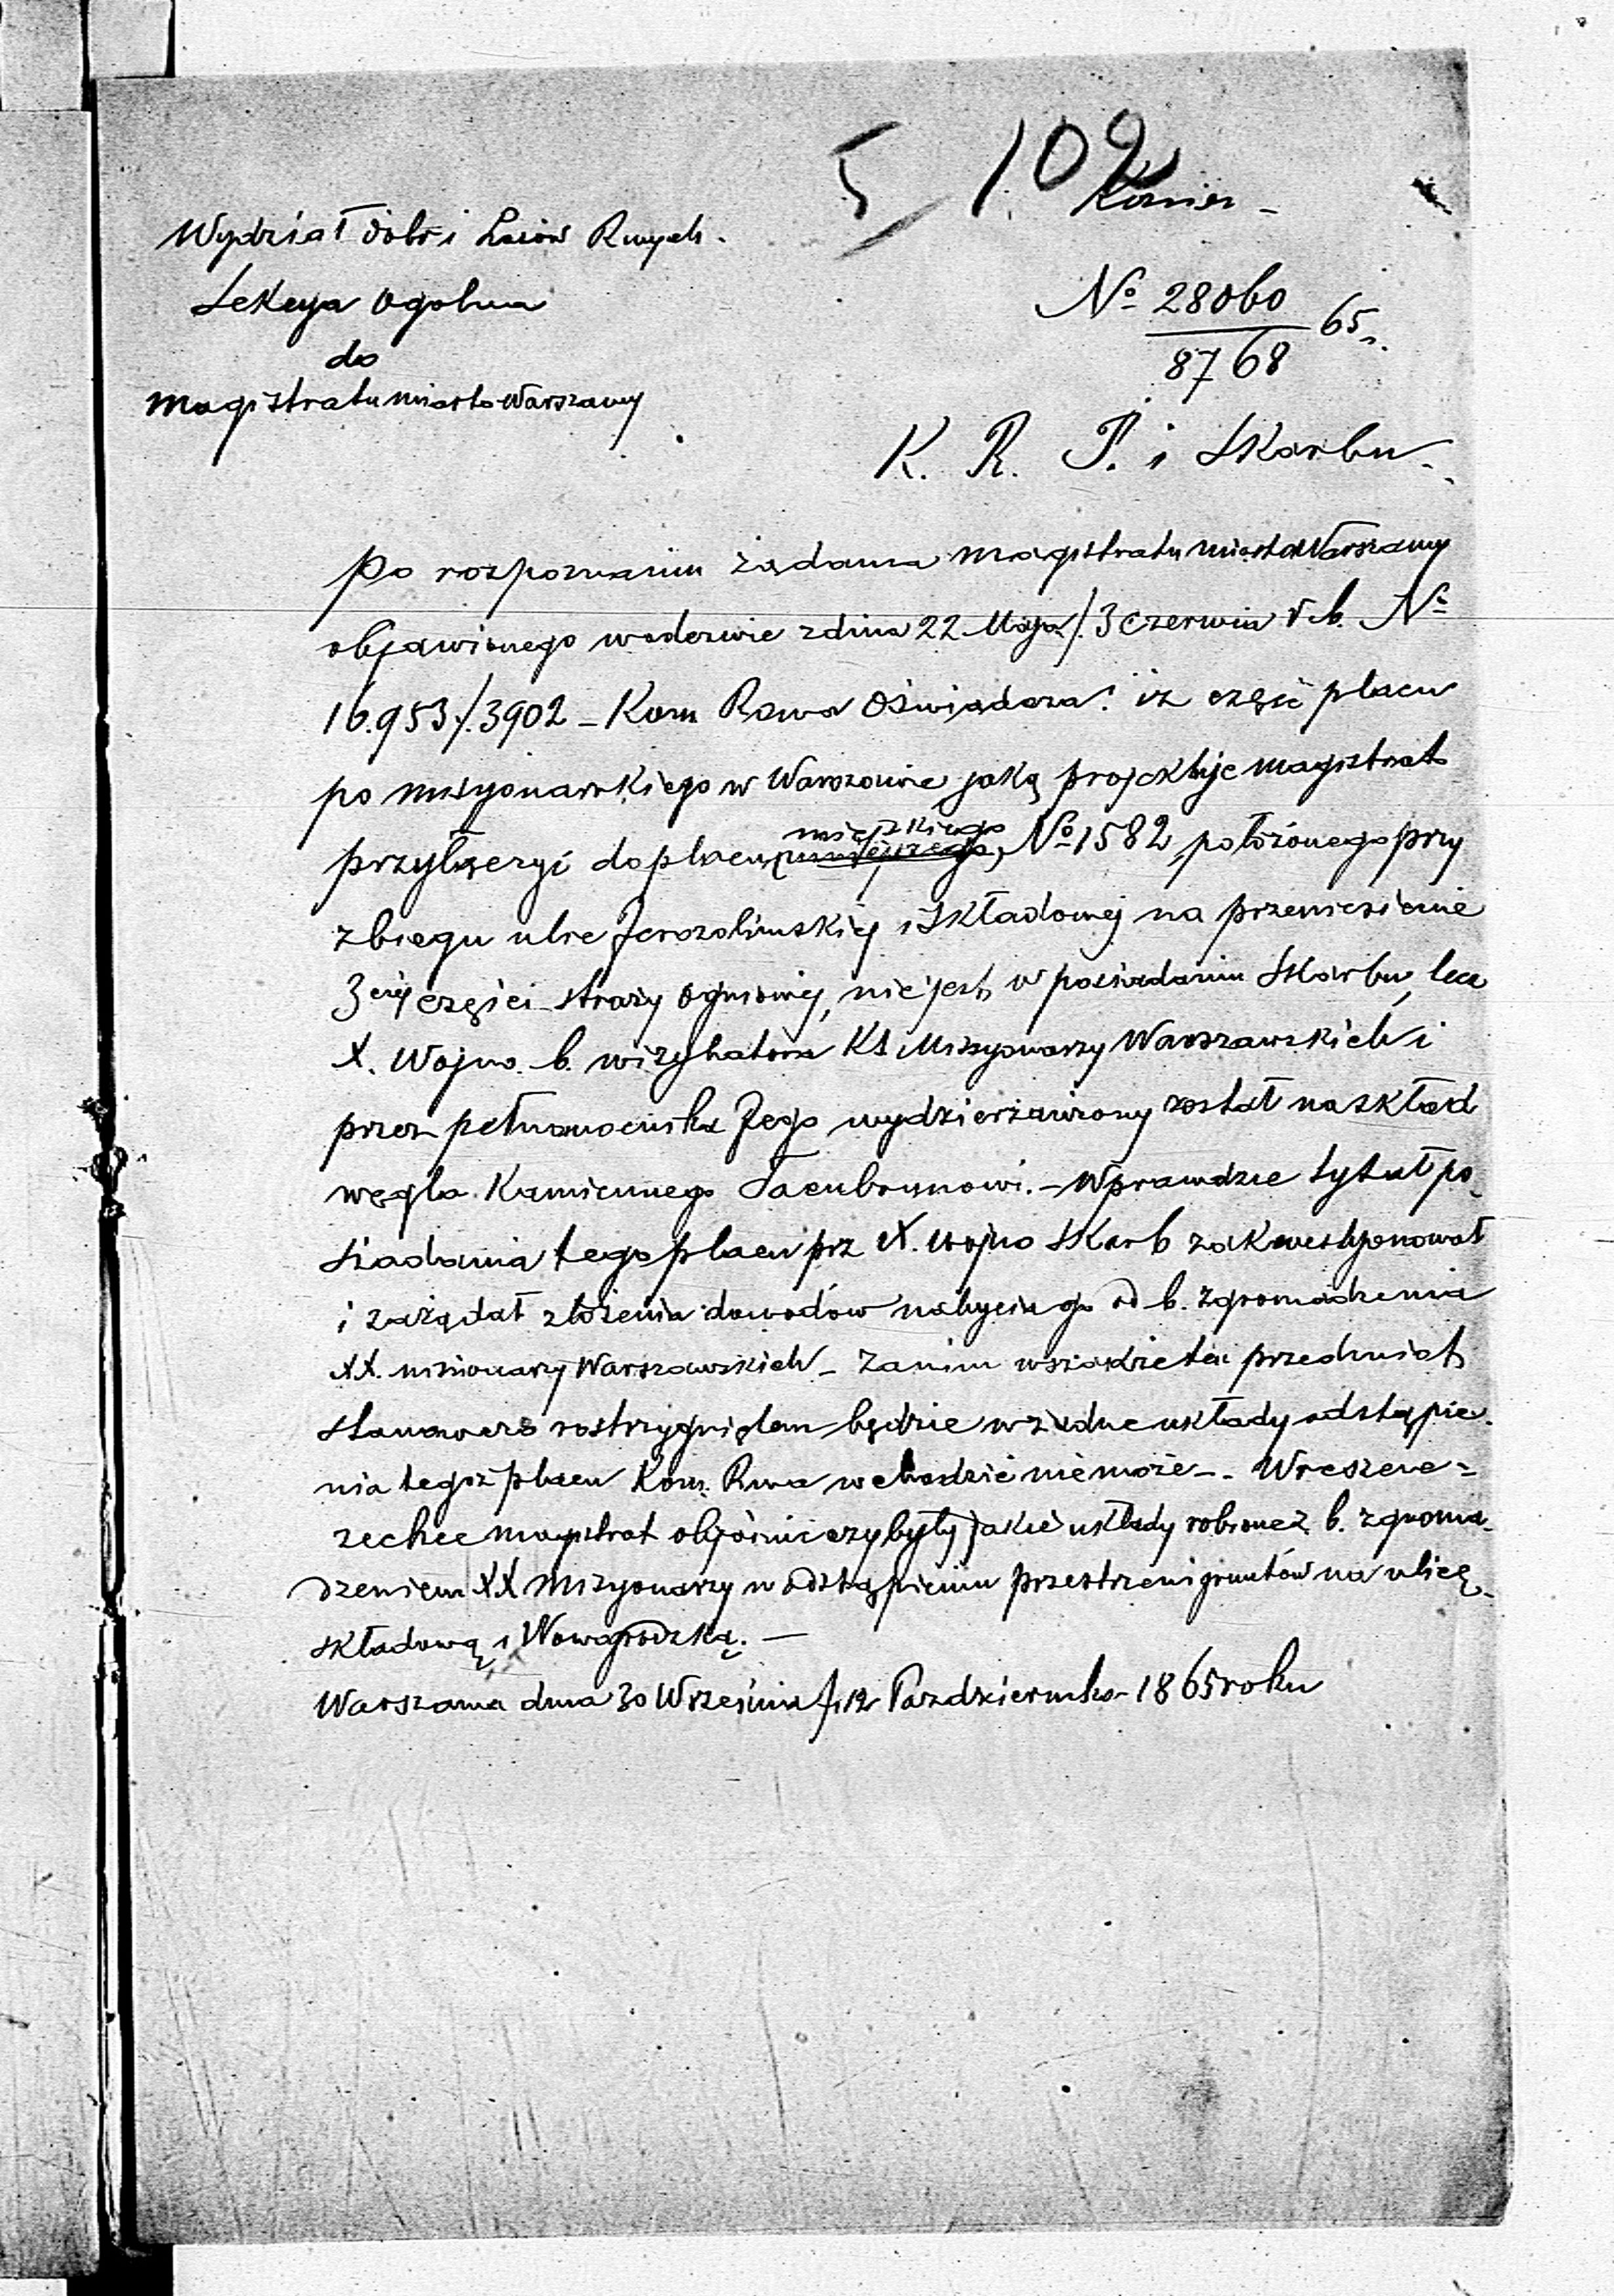 5 102
Wydział Dóbr i Lasów Rwych.
Sekcya Ogolna
do
Magistratu miasta Warszawy
№ 28060/8768 65 r.
K. R. P. i Skarbu
Po rozpoznaniu żądania Magistratu miasta Warszawy
objawionego w odezwie z dnia 22 Maja/3 Czerwca r.b. №
16.953./3902 – Kom Rowa Oświadcza: iż część placu
po misyonarskiego w Warszawie jaką projektuje Magistrat
przyłączyć do placu miejskiego № 1582, położonego przy
zbiegu ulic Jerozolimskiej i Składowej na przeniesienie
3ciej części straży Ogniowej, nie jest w posiadaniu Skarbu, lecz
X. Wojno b. wizytatora XX Missyonarzy Warszawskich i
przez pełnomocnika Jego wydzierżawiony został na skład
węgla Kamiennego – Wprawdzie tytuł po-
siadania tego placu prz X. Wojno Skarb zakwestyonował
i zażądał złożenia dowodów nabycia go od b. Zgromadzenia
XX. misionarzy Warszawskich – Zanim wszakże ten przedmiot
stanowczo rostrzygnięten będzie w żadne układy odstąpie-
nia tegoż placu Kom. Rwa wchodzić nie może –. Wreszcie –
zechce Magistrat objaśnić czy były jakie układy robione z b. zgroma-
dzeniem XX Misyonarzy w odstąpieniu przestrzeni gruntów na ulicę
Składową i Nowogrodzką. –
Warszawa dnia 30 Września /12 Pazdziernika 1865 roku